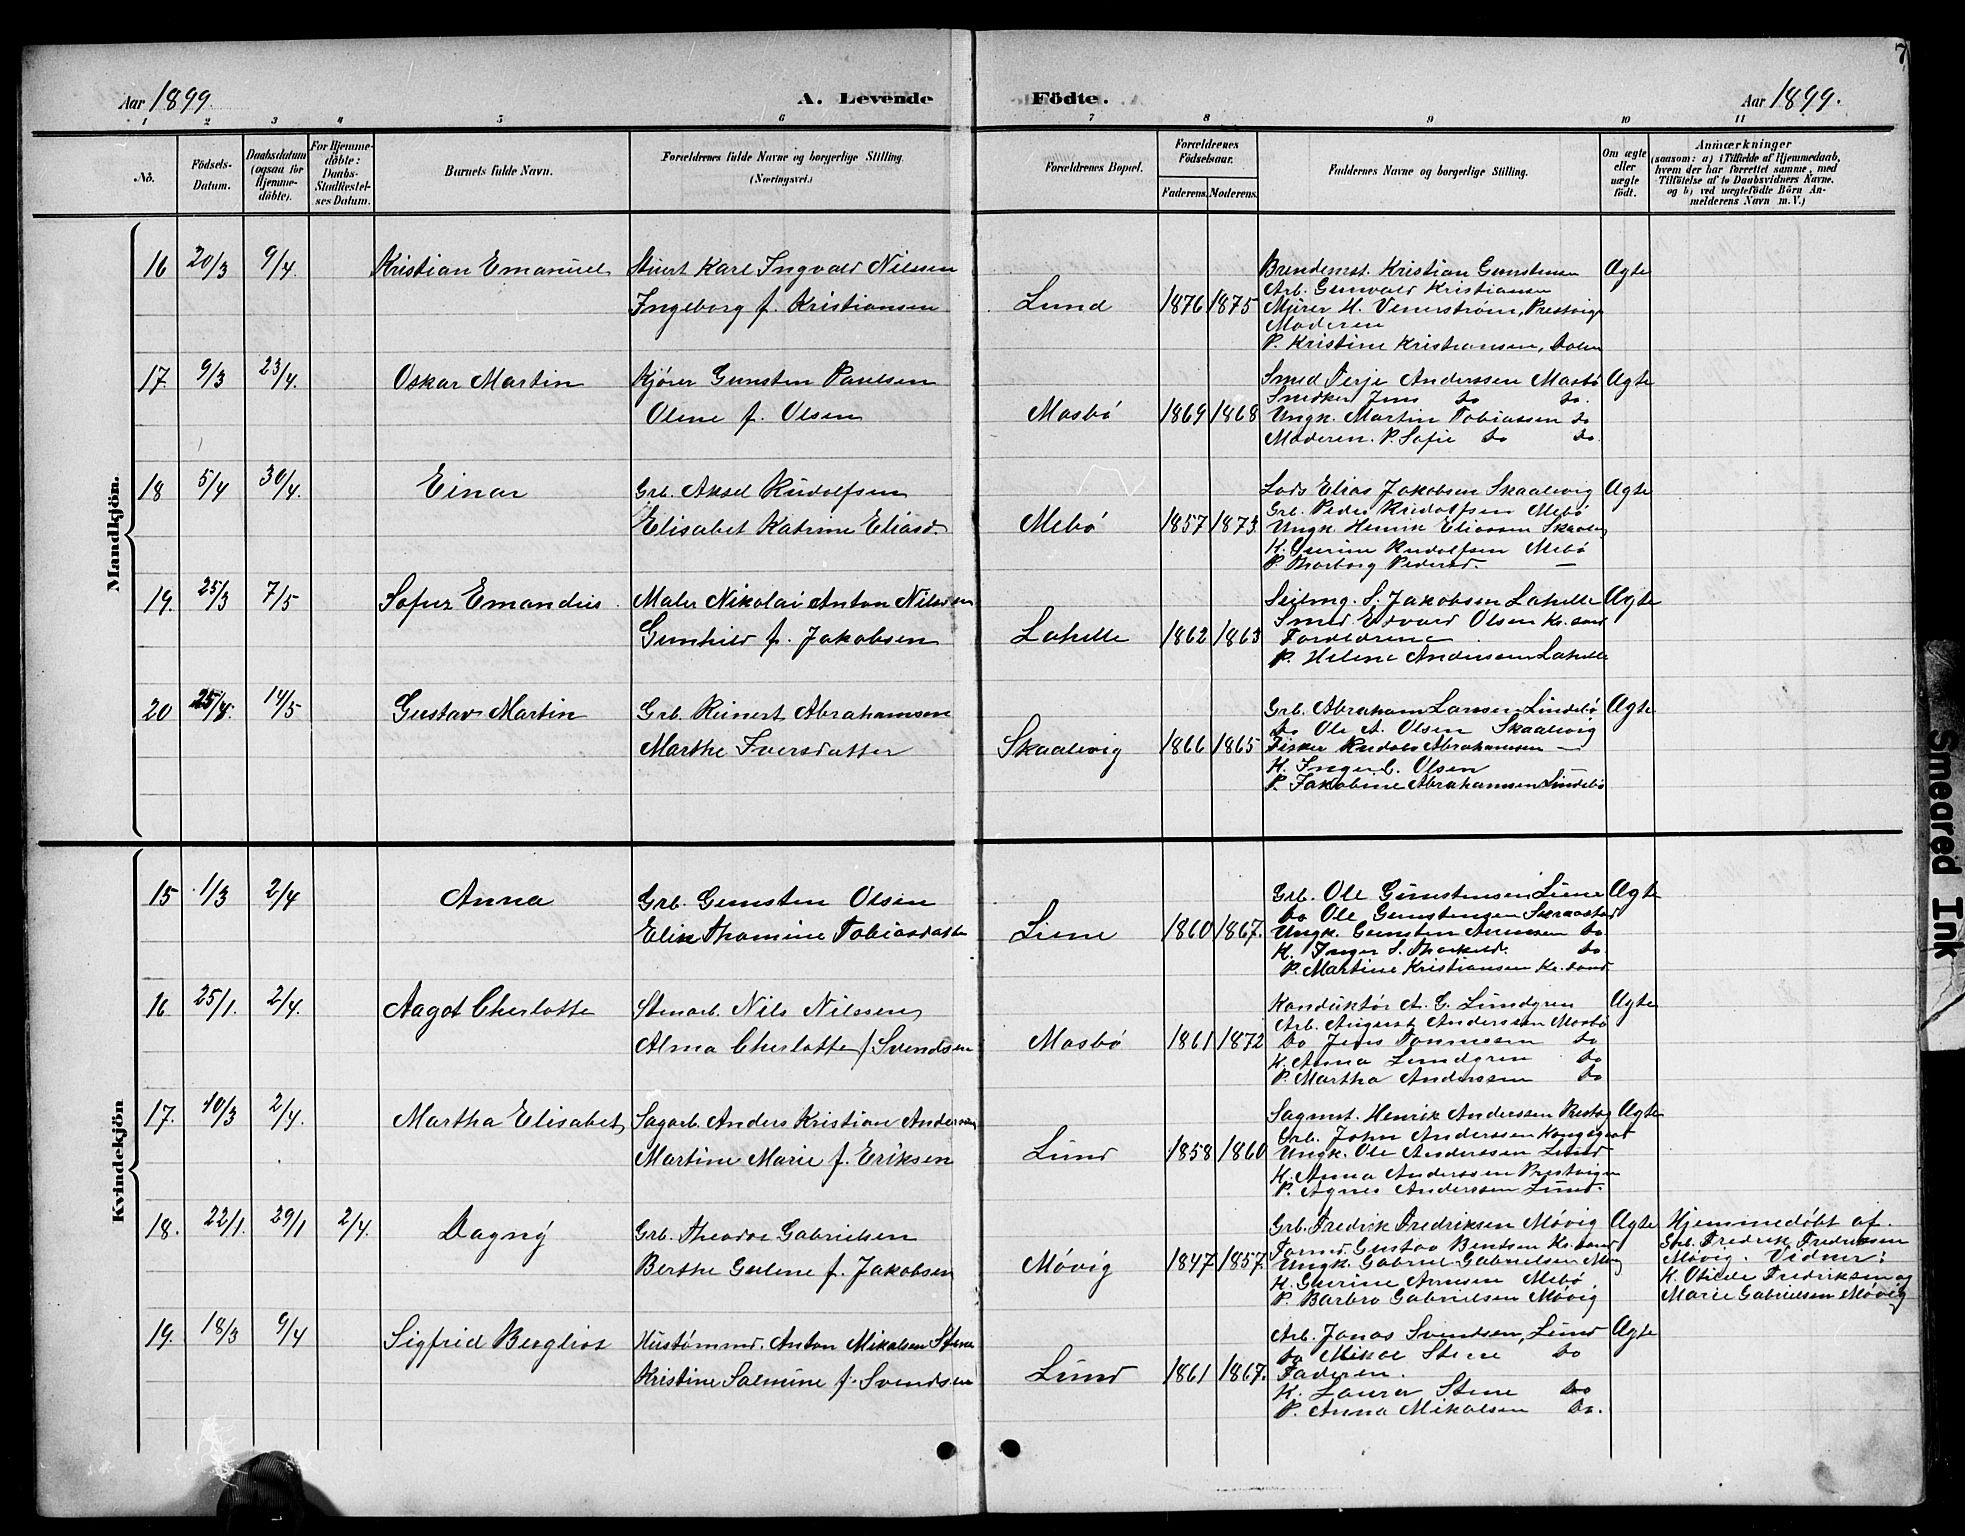 7
Aar 1899.
A. Levende Födte.
Aar 1899.
1 2 3 4 5 6 7 8 9 10 11
No.
Födsels-Datum.
Daabsdatum (ogsaa for Hjemme-döbte).
For Hjemme-döbte: Daabs-Stadfæstel-ses Datum.
Barnets fulde Navn.
Forældrenes fulde Navne og borgerlige Stilling. (Næringsvei.)
Forældrenes Bopæl.
Forældrenes Födselsaar.
Faderens. Moderens.
Faddernes Navne og borgerlige Stilling.
Om ægte eller uægte födt.
Anmærkninger
(saasom: a) i Tilfælde af Hjemmedaab,
hvem der har forrettet samme, med
Tilföielse af to Daabsvidners Navne.
og b) ved uægtefödte Börn An-
melderens Navn m. V.)
Mandkjön.
16 20/3 9/4. Kristian Emanuel Stuert Karl Ingvald Nilssen
Ingeborg f. Kristiansen
Lund 1876 1875
Kristian Gunstensen Ægte
Arb. Gunvald Kristiansen
Mürer H. Venerstrøm,
Moderen
P. Kristine Kristiansen,
17. 9/3 23/4. Oskar Martin Kjører Gunsten Paulsen
Olene f. Olsen
Mosbö 1869 1868
Smed Terje Anderssen Mosbö Ægte
Snedker Jens do do.
Ungk. Martin Tobiassen do
Moderen. P. Sofie do do.
18 5/4 30/4. Einar Grb. Aksel Rudolfsen
Elisabet Katrine Eliasd.
Mebö 1857 1873.
Lods Elias Jakobsen Skaalevig Ægte
Grb. Peder Rudolfsen Mebö
Ungk. Henrik Eliassen
K. Gurine Rudolfsen Mebö
P. Thorborg Pedersd. —
19. 25/3 7/5 Sofus Emandius. Maler Nikolai Anton Nilssen
Gunhild f. Jakobsen
Lahelle 1862 1863
Seilmg. S. Jakobsen Lahelle Ægte
Smed Edvard Olsen Kr.sand
Forældrene
P. Helene Anderssen Lahelle
20 14/5 Gustav Martin Grb. Reinert Abrahamsen
Marthe Iversdatter
Skaalevig 1866 1865
Grb. Abraham Larssen Lindebö Ægte
do Ole A. Olsen Skaalevig
Fisker Rudolf Abrahamsen —
K. Inger C. Olsen
P. Jakobine Abrahamsen Lindebö
Kvindekjön
15 1/3 2/4 Anna Grb. Gunsten Olsen
Elin Thomine Tobiasdatter
Liene 1860 1867.
Grb. Ole Gunstensen Liene Ægte
do Ole Gunstensen
Ungk. Gunsten do
K. Inger S. do
P. Martine Kristiansen Kr.sand
16 25/1. 2/4. Aagot Cherlotte Stenarb. Nils Nilssen
Alma Cherlotte f. Svendsen
Mosbö 1861 1872
Konduktör A. C. Lundgren Ægte
Arb. August Anderssen Mosbö
do Jens do
K. Anna Lundgren do
P. Martha Anderssen do
17. 10/3 2/4. Martha Elisabet Sagarb. Anders Kristian Anderssen
Martine Marie f. Eriksen
Lund 1858 1860
Sagmst. Henrik Anderssen Ægte
Grb. John Anderssen Kongsgaard
Ungk. Ole Anderssen Lund
K. Anna Anderssen
P. Agnes Anderssen Lund.
18. 22/1. 29/1 2/4. Dagny Grb. Theodor Gabrielsen
Berthe Gulene f. Jakobsen
Mövig 1847 1857.
Grb. Fredrik Fredriksen Mövig Ægte
Formd. Gustav Bentsen Kr.sand
Ungk. Gabriel Gabrielsen
K. Gurine Mebö
P. Barbro Gabrielsen Mövig
Hjemmedöbt af
Grb. Fredrik Fredriksen
Mövig. Vidner:
K. Otilde Fredriksen og
Marie Gabrielsen Mövig
19. 18/3 9/4 Sigfrid Bergliot Hustömmd. Anton Mikalsen Stene
Kristine Salmine f. Svendsen
Lund 1861 1867.
Arb. Jonas Svendsen, Lund Ægte
do Mikal Stene do
Faderen.
K. Laura Stene do
P. Anna Mikalsen do.
Smeared Ink